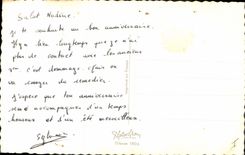 Salut Nadine.
Je te souhaite un bon anniversaire.
Il y a bien longtemps que je n'ai
plus de contact avec les anciens
c'est dommage, j'irais
un essayer de remédier
J'espère que ton anniversaire
sera accompagnés d'un temps
heureux et d'un été merveilleux
Sylvain